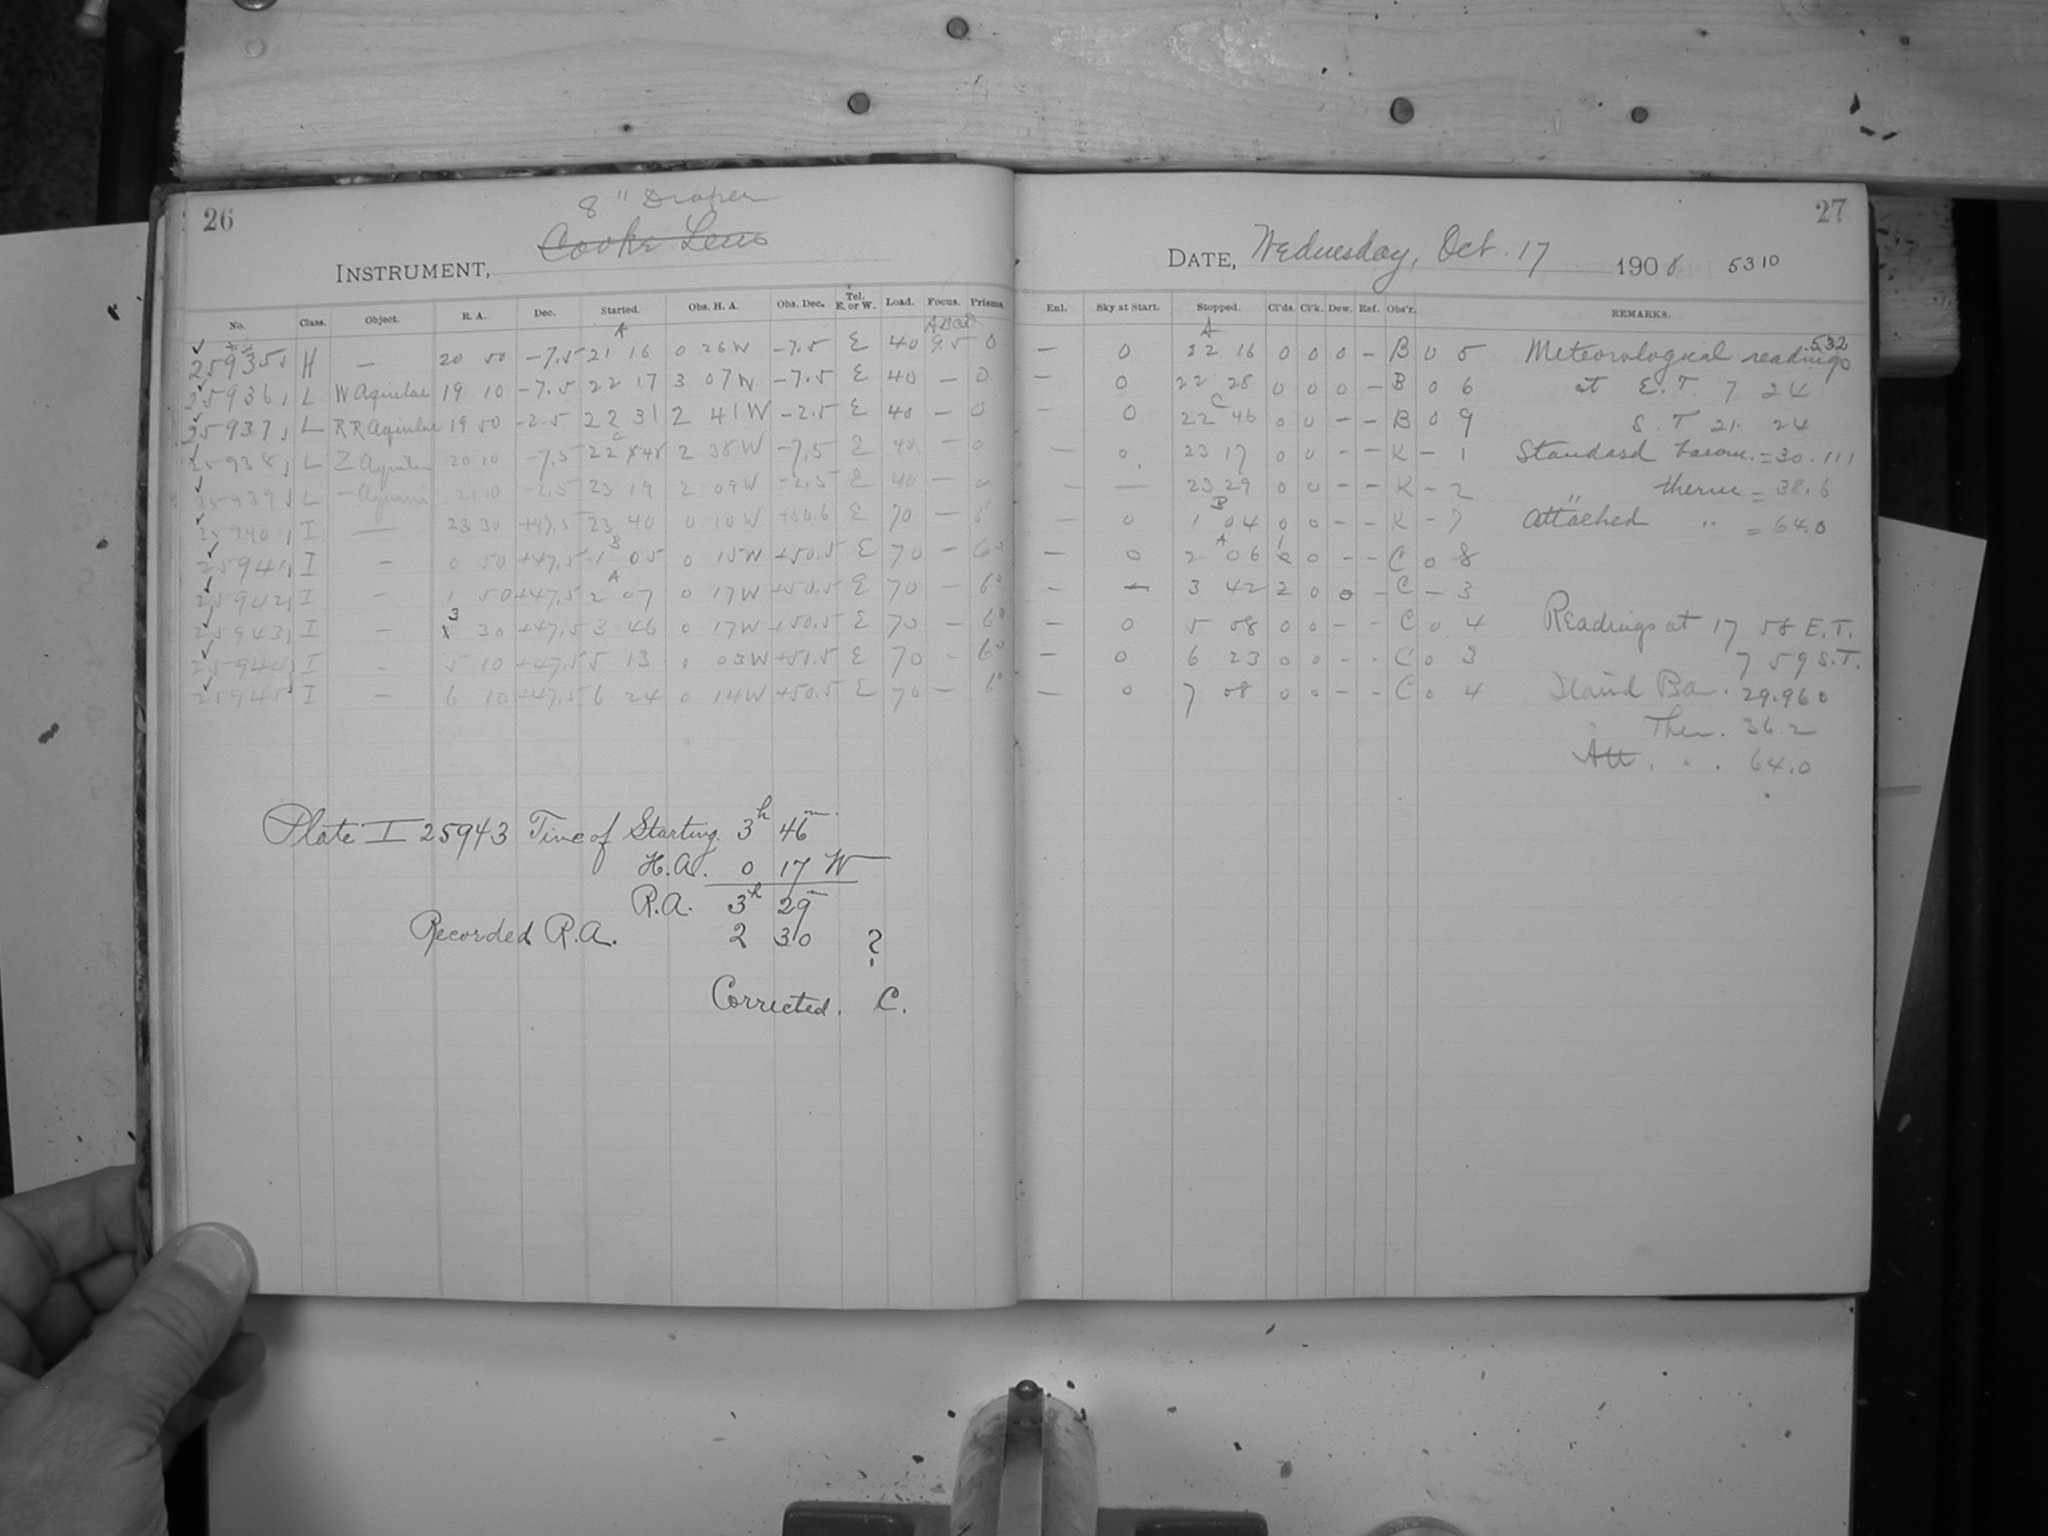 26
8" Draper
Cooke Lens
INSTRUMENT,
No. Class. Object. R. A. Dec. Started. Obs. H. A. Obs. Dec. Tel. E. or W. Load. Focus. Prisms.
A ABCD
25935 H — 20 50 -7.5 21 16 0 26W -7.5 E 40 95 0
25936 L W Aquilae 19 10 -7.5 22 17 3 07W -7.5 E 40 — 0
25937 L RR Aquilae 19 50 -2.5 22 31 2 41W -2.5 E 40 — 0
C
25938 L Z Aquilae 20 10 -7.5 22 48 2 38W -7.5 E 40 — 0
25939 L — Aquarii 21 10 -2.5 23 19 2 09W -2.5 E 40 — 0
25940 I — 23 30 +47.5 23 40 0 10W +50.6 E 70 — 6°
B
25941 I — 0 50 +47.5 1 05 0 15W +50.5 E 70 — 6°
A
25942 I — 1 50 +47.5 2 07 0 17W +50.5 E 70 — 6°
25943 I — 3 30 +47.5 3 46 0 17W +50.5 E 70 — 6°
25944 I — 5 10 +47.5 5 13 0 03W +50.5 E 70 — 6°
25945 I — 6 10 +47.5 6 24 0 14W +50.5 E 70 — 6°
Plate I 25943 Time of Starting. 3h 46m
H.A. 0 17 W
R.A. 3h 29m
Recorded R.A. 2 30 ?
Corrected. C.
27
DATE, Wednesday, Oct. 17 190 5310
Enl. Sky at Start. Stopped. Cl'ds. Cl'k. Dew. Ref. Obs'r. REMARKS.
A 532
— 0 22 16 0 0 0 - B 0 5 Meteorological readings
— 0 22 28 0 0 0 - B 0 6 at E. T. 7 24
C
— 0 22 46 0 0 - - B 0 9 S. T 21. 24
— 0 23 17 0 0 - - K - 1 Standard barom. = 30.111
— — 23 29 0 0 - - K - 2 " therm = 38.6
B
— 0 1 04 0 0 - - K - 7 Attached " = 64.0
A 1
— 0 2 06 0 - - C 0 8
— — 3 42 2 0 0 - C - 3
— 0 5 08 0 0 - - C 0 4 Readings at 17 58 E.T.
— 0 6 23 0 0 - - C 0 3 7 59 S.T.
— 0 7 08 0 0 - - C 0 4 Stand Ba. 29.960
Ther. 36.2
Att. " . 64.0